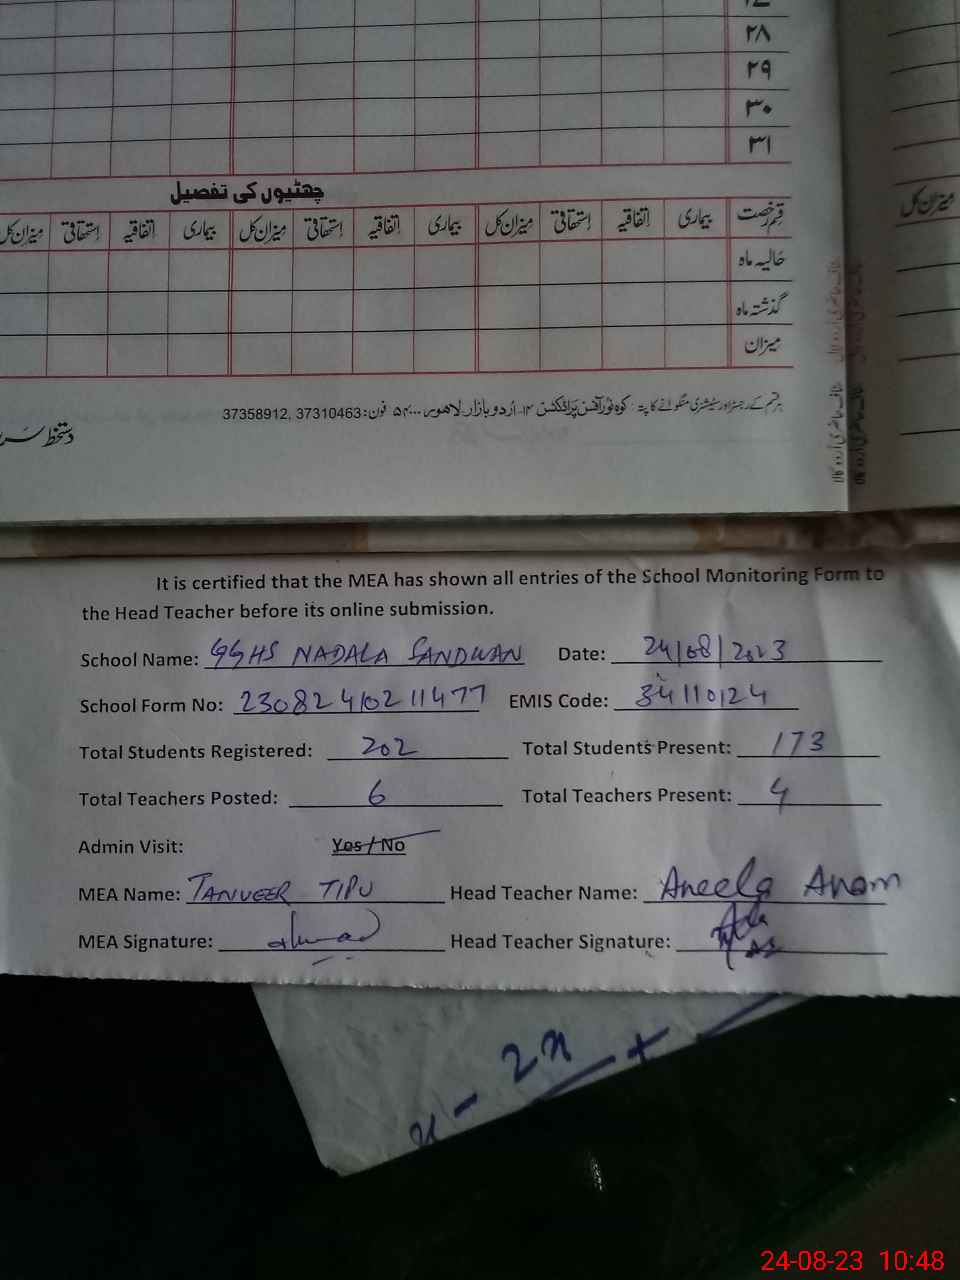 ۲۸
۲۹
۳۰
۳۱
چھٹیوں کی تفصیل
قسم رخصت بیماری اتفاقیہ استحقاقی میزان کل بیماری اتفاقیہ استحقاقی میزان کل بیماری اتفاقیہ استحقاقی میزان کل
حالیہ ماہ
گذشتہ ماہ
میزان
میزان کل
ہر قسم کے رجسٹر اور سٹیشنری منگوانے کا پتہ: کوہ نور آفسٹ پرنٹنگ ۱۴-اُردو بازار لاہور ۵۴۰۰۰ فون: 37310463 ,37358912
دستخط
It is certified that the MEA has shown all entries of the School Monitoring Form to
the Head Teacher before its online submission.
School Name: GGHS NADALA SANDWAN Date: 24/08/2023
School Form No: 2308240211477 EMIS Code: 34110124
Total Students Registered: 202 Total Students Present: 173
Total Teachers Posted: 6 Total Teachers Present: 4
Admin Visit: Yes/No
MEA Name: TANVEER TIPU Head Teacher Name: Aneela Anam
MEA Signature: Head Teacher Signature:
x - 2x +
24-08-23 10:48